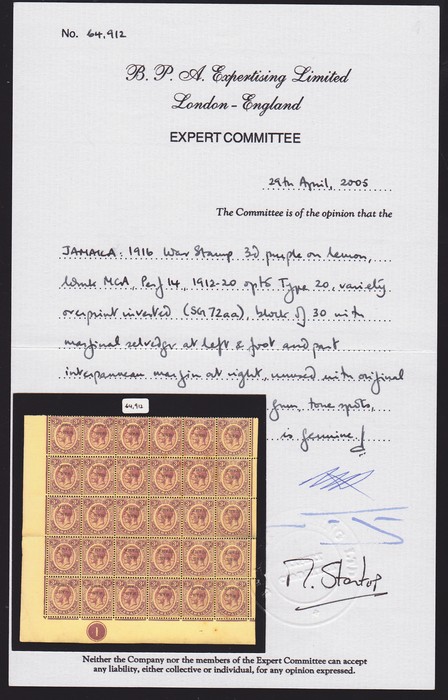 No. 64,912
B. P. A. Expertising Limited
London - England
EXPERT COMMITTEE
29th April, 2005
The Committee is of the opinion that the
JAMAICA: 1916 War Stamp 3d purple on lemon,
wmk MCA, Perf 14, 1912-20 opts Type 20, variety
overprint inverted (SG 72aa), block of 30 with
marginal selvedge at left & foot and part
interpanneau margin at right, unused with original
gum, tone spots,
is genuine
64,912
1
Neither the Company nor the members of the Expert Committee can accept
any liability, either collective or individual, for any opinion expressed.